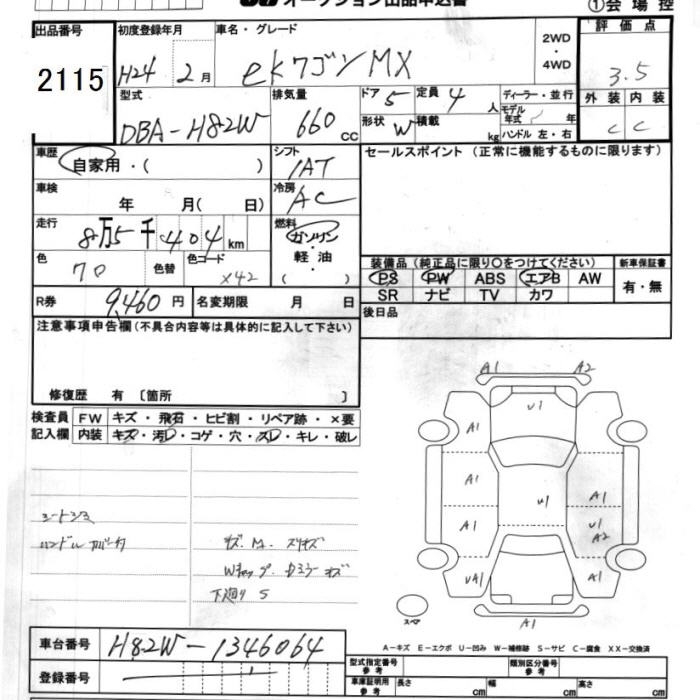 オークション出品申込書
①会場控
出品番号 初度登録年月 車名・グレード 2WD 評価点
2115 H24 2月 ekワゴン MX ・4WD 3.5
型式 排気量 ドア 5 定員 4人 ディーラー・並行 外装 内装
DBA-H82W 660cc 形状 W 積載 kg モデル年式 年 C C
ハンドル 左・右
車歴 自家用・( ) シフト セールスポイント (正常に機能するものに限ります)
IAT
車検 年 月( 日) 冷房 AC
走行 8万5千404km 燃料 ガソリン・軽油・( )
色 色替 色コード X42
装備品 (純正品に限り○をつけてください) 新車保証書
PS PW ABS エアB AW 有・無
SR ナビ TV カワ
R券 9,460円 名変期限 月 日 後日品
注意事項申告欄(不具合内容等は具体的に記入して下さい)
修復歴 有 〔箇所 〕
検査員 FW キズ・飛石・ヒビ割・リペア跡・×要
記入欄 内装 キズ・汚レ・コゲ・穴・スレ・キレ・破レ
A1 A2
U1
A1 A1
A1
U1 A1
A1 U1
A2
UA1 A1
A1
スペア
シートシミ
下廻り S
車台番号 H82W-1346064
A-キズ E-エクボ U-凹み W-補修跡 S-サビ C-腐食 XX-交換済
登録番号
型式指定番号参考 類別区分番号参考
車庫証明用参考 長さ cm 幅 cm 高さ cm